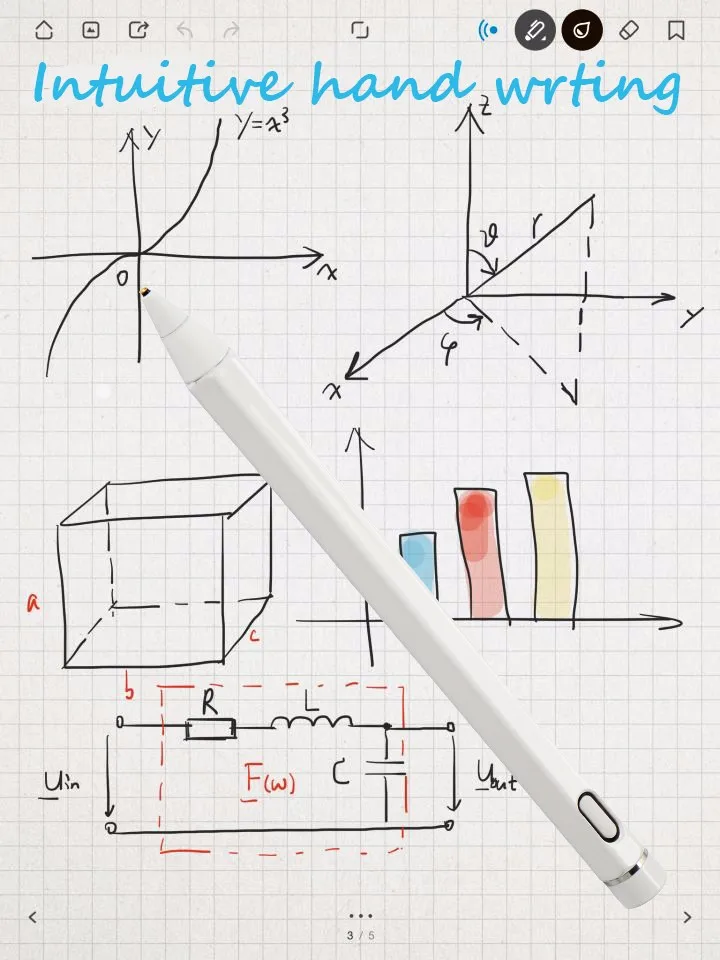 Intuitive hand wrting
y y=x³
0 x
z
ϑ r
φ y
x
a
b c
R L
Uin F(w) C Uout
3 / 5